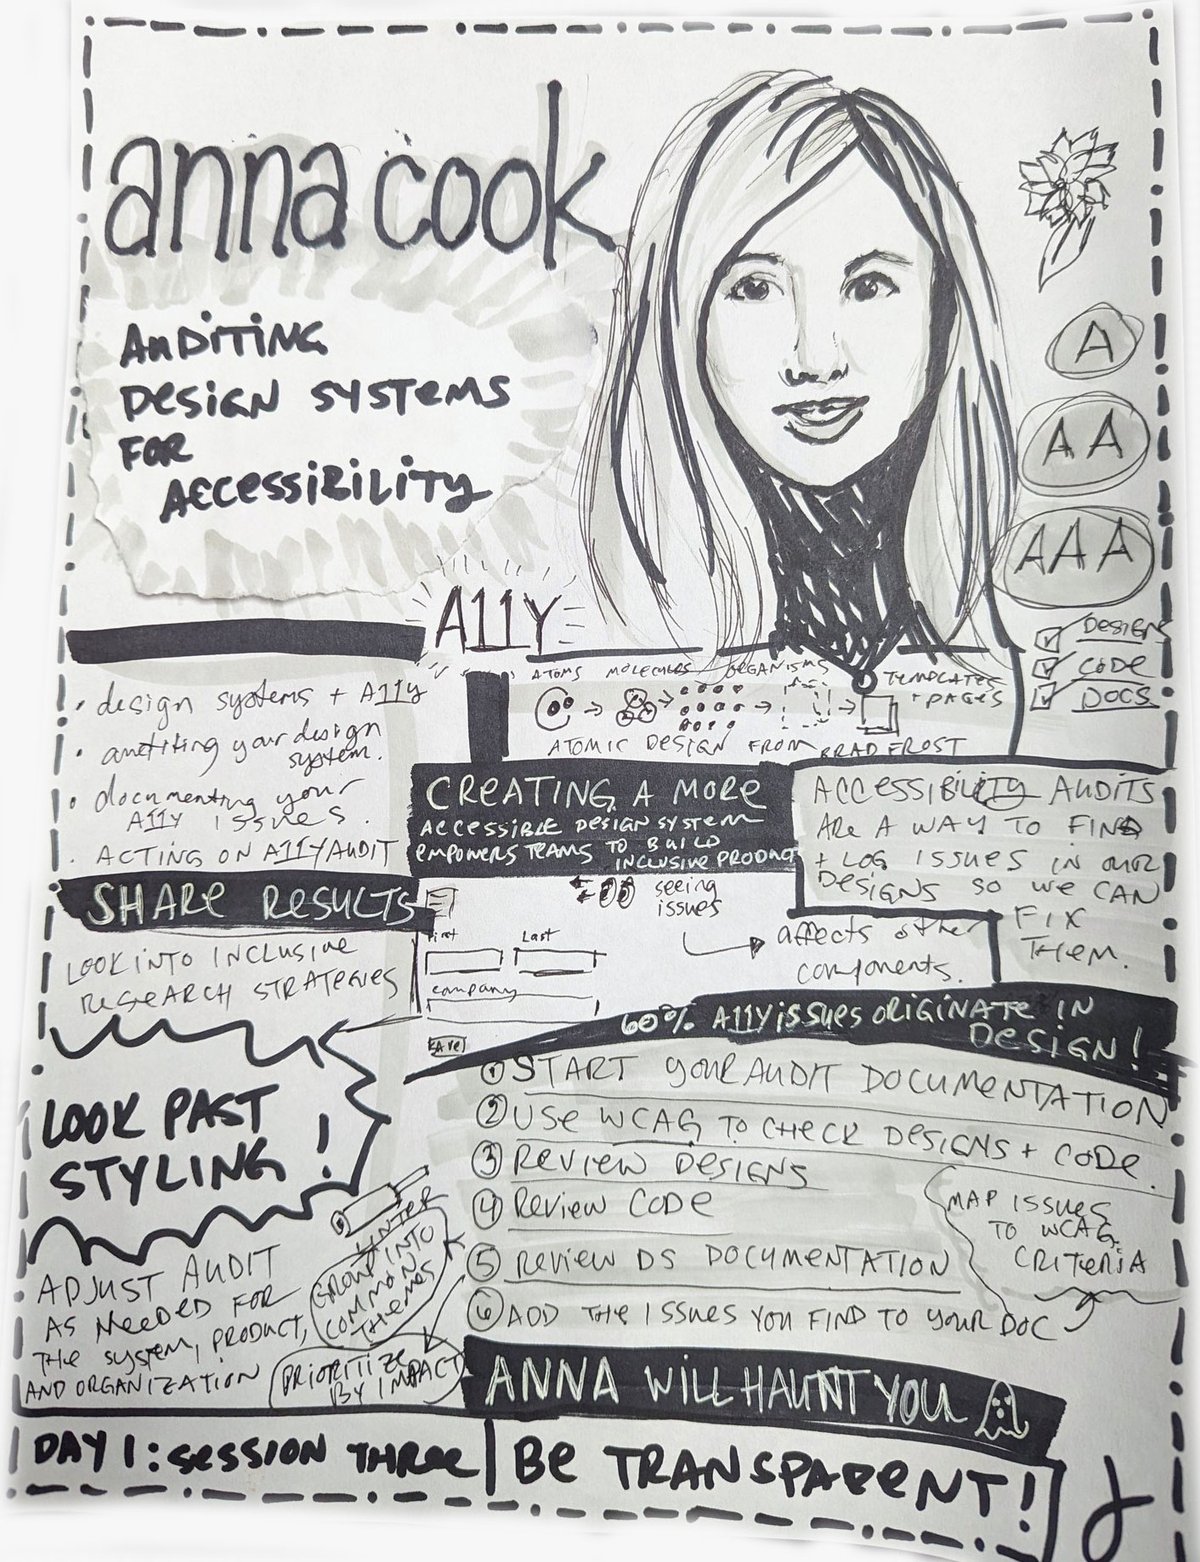 anna cook
AUDITING
DESIGN SYSTEMS
FOR
ACCESSIBILITY
A
AA
AAA
DESIGN
CODE
DOCS
A11Y
ATOMS MOLECULES ORGANISMS TEMPLATES
+ PAGES
ATOMIC DESIGN FROM BRAD FROST
• design systems + A11y
• auditing your design
system.
• documenting your
A11y ISSUES.
• ACTING ON A11Y AUDIT
CREATING A MORE
ACCESSIBLE DESIGN SYSTEM
EMPOWERS TEAMS TO BUILD
INCLUSIVE PRODUCT
ACCESSIBILITY AUDITS
ARE A WAY TO FIND
+ LOG ISSUES IN OUR
DESIGNS SO WE CAN
FIX
THEM.
SHARE RESULTS
LOOK INTO INCLUSIVE
RESEARCH STRATEGIES
seeing
issues
affects other
components.
First Last
company
SAVE
60% A11y issues ORIGINATE IN
DESIGN!
① START your AUDIT DOCUMENTATION
② USE WCAG TO CHECK DESIGNS + CODE.
③ REVIEW DESIGNS
④ REVIEW CODE
⑤ REVIEW DS DOCUMENTATION
⑥ ADD THE ISSUES YOU FIND TO your DOC
MAP ISSUES
TO WCAG
CRITERIA
LOOK PAST
STYLING!
ADJUST AUDIT
AS NEEDED FOR
THE SYSTEM, PRODUCT,
AND ORGANIZATION
LINTER
GROUP INTO
COMMON
THEMES
PRIORITIZE
BY IMPACT
ANNA WILL HAUNT YOU
DAY 1: SESSION THREE
BE TRANSPARENT!